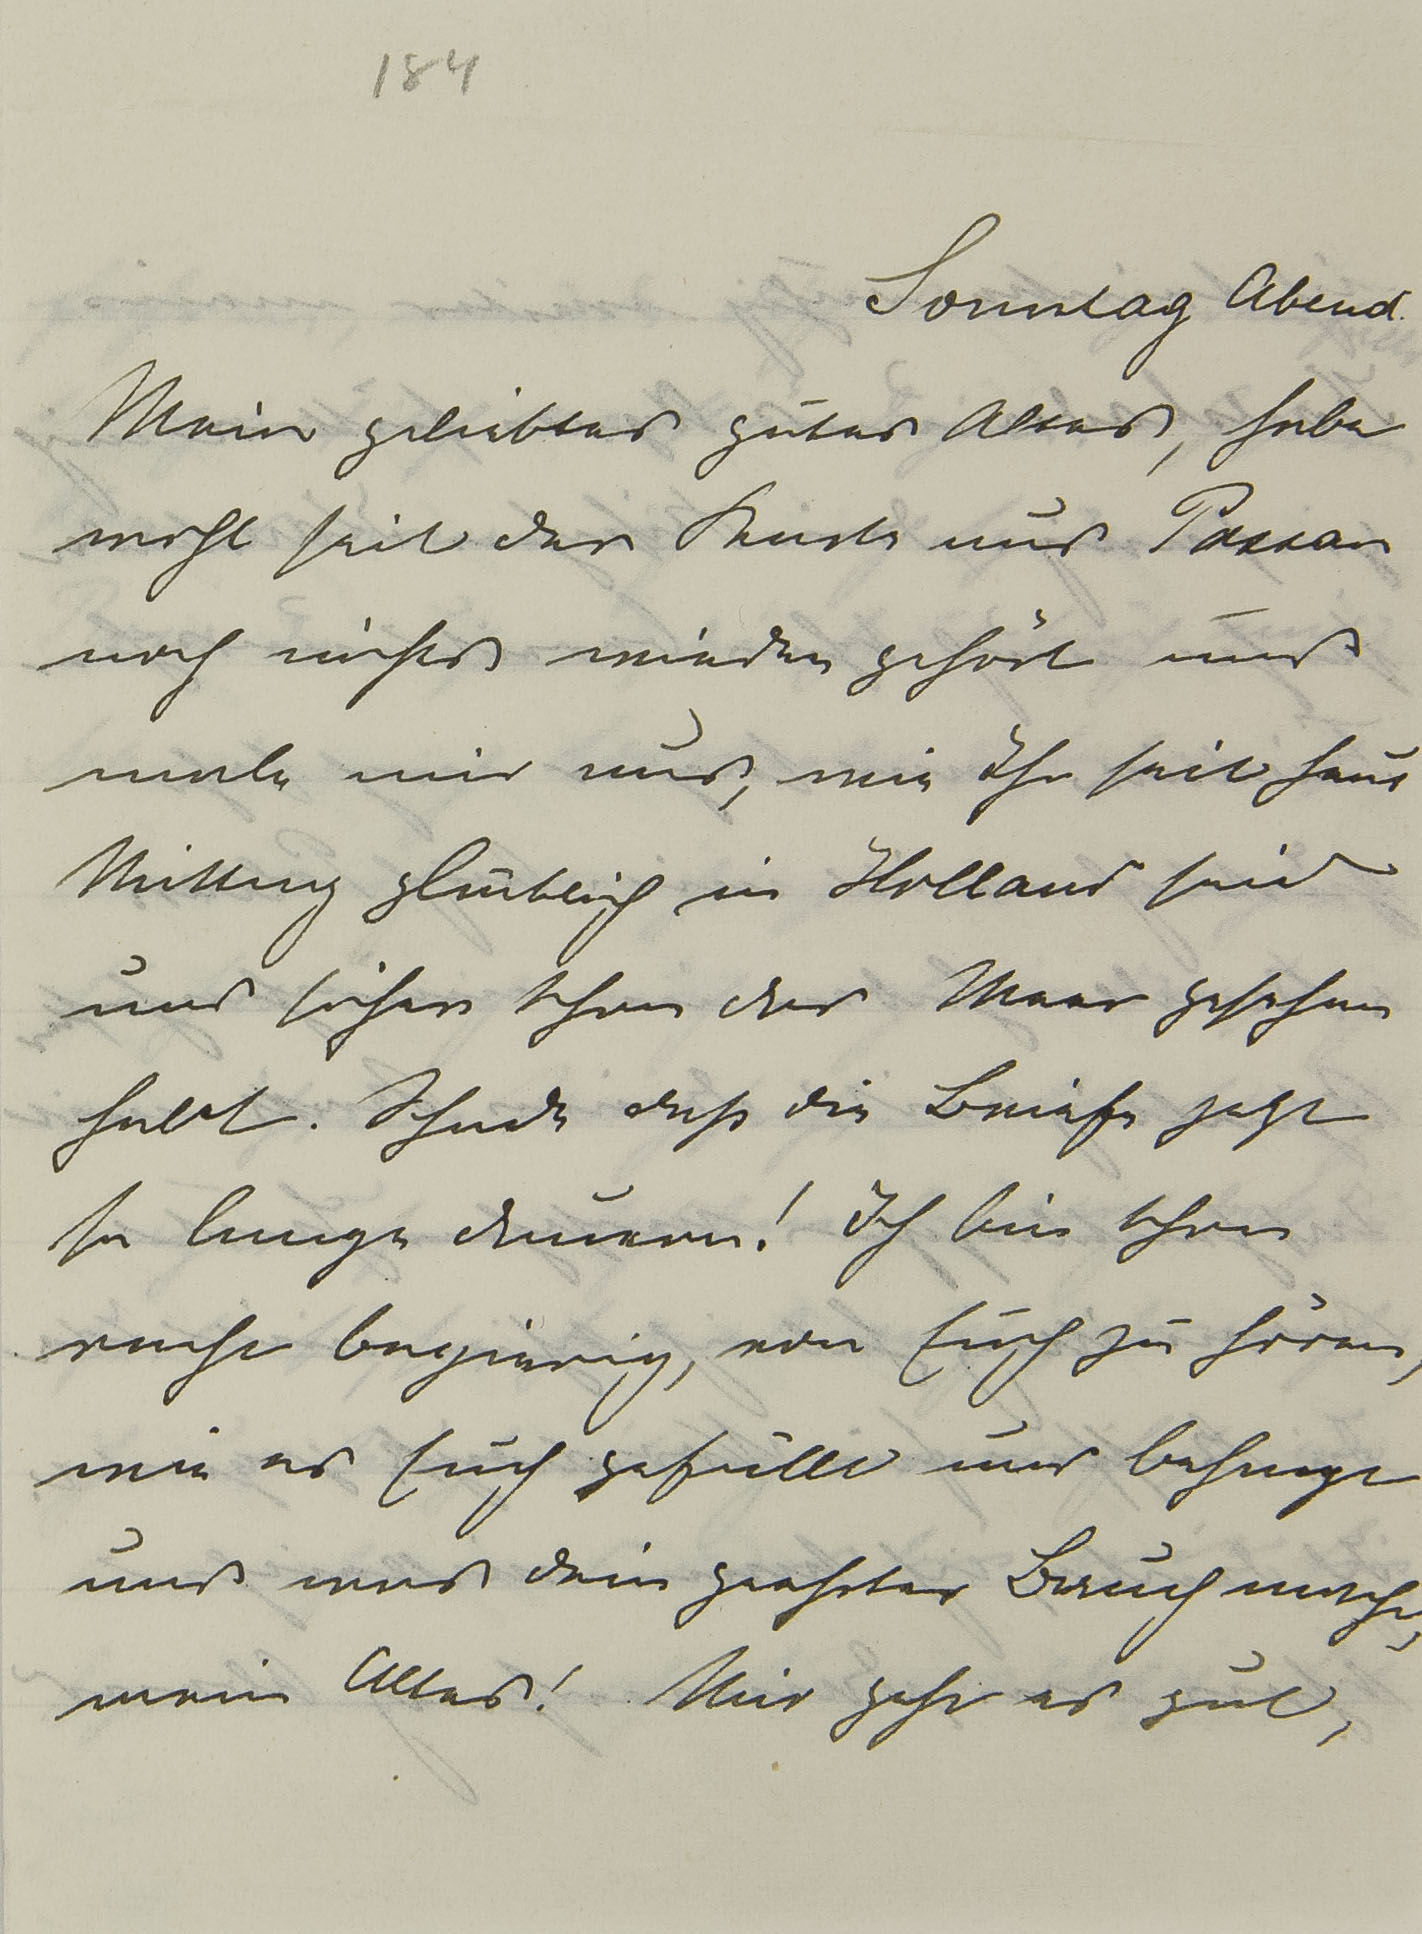 184
Sonntag Abend.
Mein geliebtes gutes Altes, habe
wohl seit der Karte aus Passau
noch nichts wieder gehört und
male mir aus, wie Ihr seit heut
Mittag glücklich in Holland seid
und sicher schon das Meer gesehen
habt. Schade daß die Briefe jetzt
so lange dauern! Ich bin schon
recht begierig, von Euch zu hören,
wie es Euch gefällt und behagt
und was dein geehrter Bauch macht,
mein Altes! Mir geht es gut,